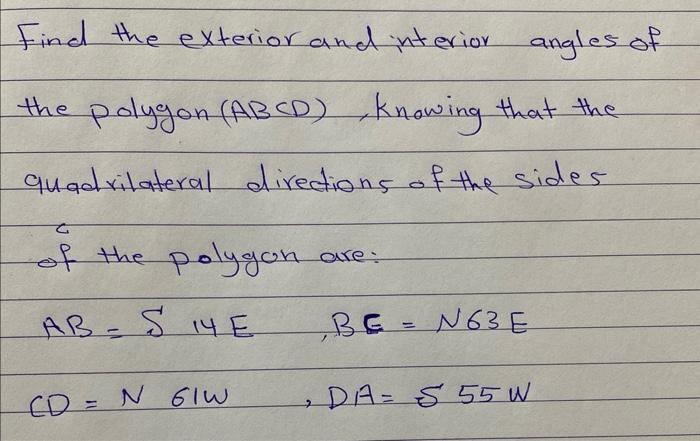 Find the exterior and interior angles of
the polygon (ABCD), Knowing that the
quadrilateral directions of the sides
of the polygon are:
AB = S 14 E , BC = N63E
CD = N 61W , DA = S 55 W